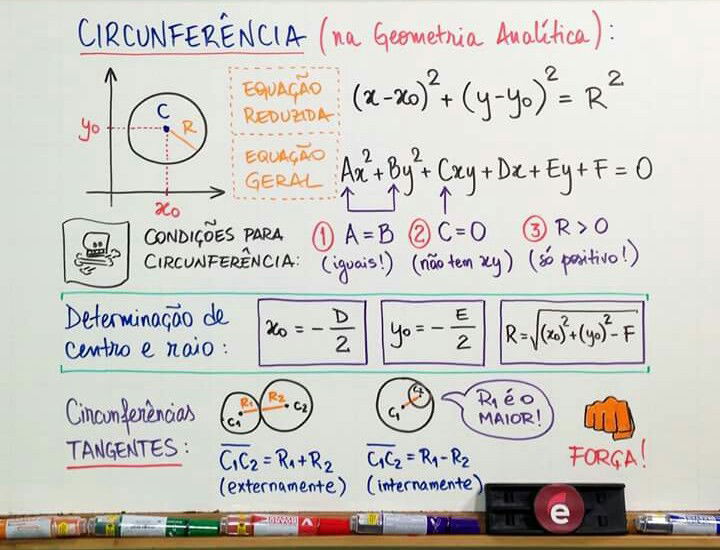 CIRCUNFERÊNCIA (na Geometria Analítica):
y₀
C
R
x₀
EQUAÇÃO
REDUZIDA
(x-x₀)² + (y-y₀)² = R²
EQUAÇÃO
GERAL
Ax² + By² + Cxy + Dx + Ey + F = 0
CONDIÇÕES PARA
CIRCUNFERÊNCIA:
① A = B
(iguais!)
② C = 0
(não tem xy)
③ R > 0
(só positivo!)
Determinação de
centro e raio:
x₀ = - D/2
y₀ = - E/2
R = √(x₀)² + (y₀)² - F
Circunferências
TANGENTES:
R₁ R₂
C₁ C₂
C̅₁C̅₂ = R₁ + R₂
(externamente)
C₁ C₂
R₁ é o
MAIOR!
C̅₁C̅₂ = R₁ - R₂
(internamente)
FORÇA!
e